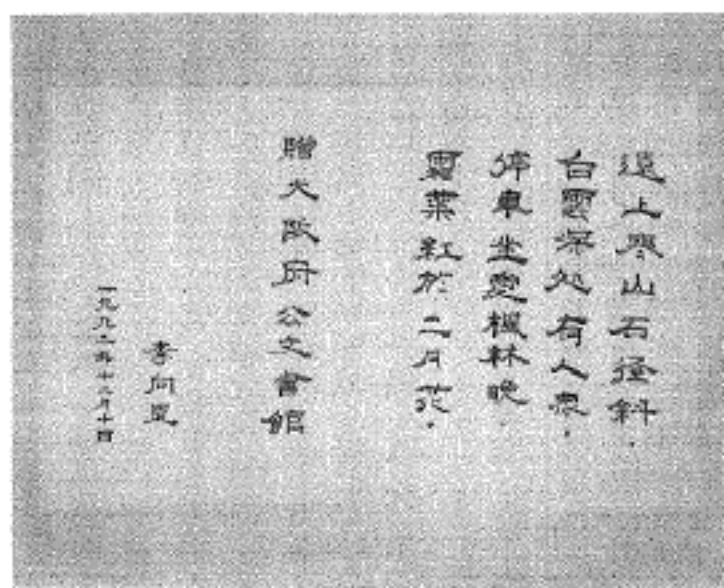 遠上寒山石徑斜.
白雲深処有人家.
停車坐愛楓林晩.
霜葉紅於二月花.
贈大阪府公文書館
李向罡
一九九一年十二月十四